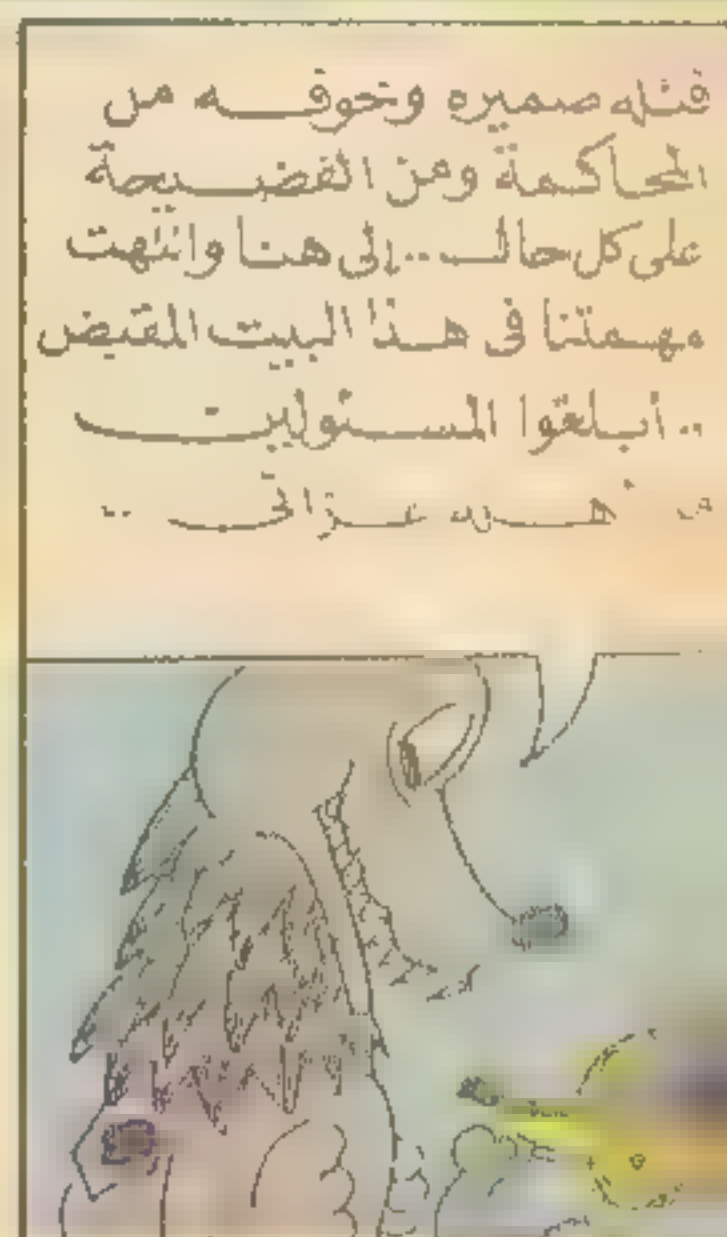 قتله ضميره وخوفه من
المحاكمة ومن الفضيحة
على كل حال .. إلى هنا وانتهت
مهمتنا فى هذا البيت المقبض
.. أبلغوا المسئولين